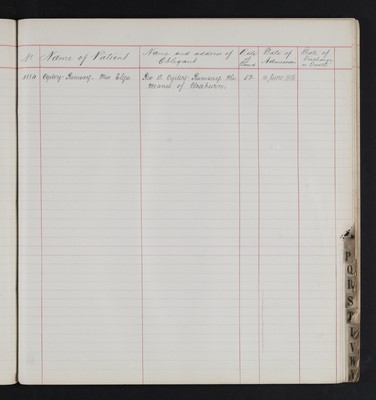 No Name of Patient Name and address of Obligant Rate of Board Date of Admission Date of Discharge or Death
Ogilvy-Ramsay. Miss Eliza Rev. D. Ogilvy-Ramsay. The 52. June
Manse of
P
Q
R
S
T
U
V
W